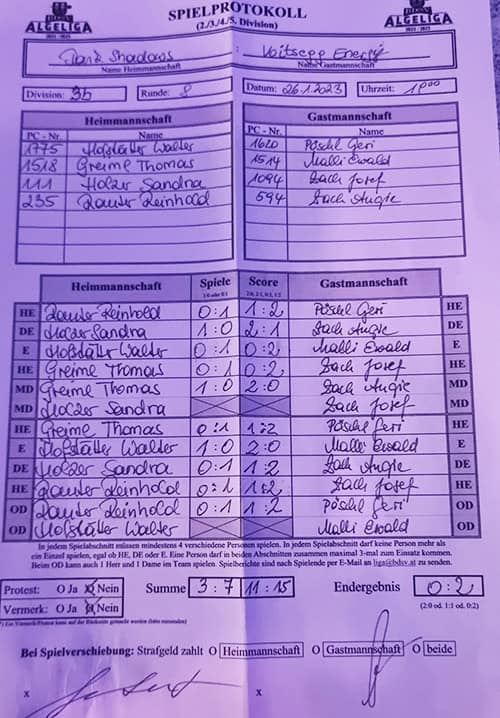 ALGELIGA SPIELPROTOKOLL ALGELIGA
(2./3./4./5. Division)
Dark Shadows : Voitsepp Energy
Name Heimmannschaft Name Gastmannschaft
Division: 3b Runde: 8 Datum: 26.1.2023 Uhrzeit: 19⁰⁰
Heimmannschaft Gastmannschaft
PC - Nr. Name PC - Nr. Name
1775 Hofstätter Walter 1620 Pöschl Geri
1518 Greime Thomas 1514 Malli Ewald
111 Holzer Sandra 1094 Zach Josef
235 Rauter Reinhold 594 Zach Angie
Heimmannschaft Spiele Score Gastmannschaft
1:0 oder 0:1 2:0, 2:1, 0:2, 1:2
HE Rauter Reinhold 0:1 1:2 Pöschl Geri HE
DE Holzer Sandra 1:0 2:1 Zach Angie DE
E Hofstätter Walter 0:1 0:2 Malli Ewald E
HE Greime Thomas 0:1 0:2 Zach Josef HE
MD Greime Thomas 1:0 2:0 Zach Angie MD
MD Holzer Sandra Zach Josef MD
HE Greime Thomas 0:1 1:2 Pöschl Geri HE
E Hofstätter Walter 1:0 2:0 Malli Ewald E
DE Holzer Sandra 0:1 1:2 Zach Angie DE
HE Rauter Reinhold 0:1 1:2 Zach Josef HE
OD Rauter Reinhold 0:1 1:2 Pöschl Geri OD
OD Hofstätter Walter Malli Ewald OD
In jedem Spielabschnitt müssen mindestens 4 verschiedene Personen spielen. In jedem Spielabschnitt darf keine Person mehr als
ein Einzel spielen, egal ob HE, DE oder E. Eine Person darf in beiden Abschnitten zusammen maximal 3-mal zum Einsatz kommen.
Beim OD kann auch 1 Herr und 1 Dame im Team spielen. Spielberichte sind nach Spielende per E-Mail an liga@bdsv.at zu senden.
Protest: O Ja O Nein Summe 3:7 11:15 Endergebnis 0:2
Vermerk: O Ja O Nein (2:0 od. 1:1 od. 0:2)
*) Ein Vermerk/Protest kann auf der Rückseite gemacht werden (bitte ankreuzen)
Bei Spielverschiebung: Strafgeld zahlt O Heimmannschaft O Gastmannschaft O beide
x x